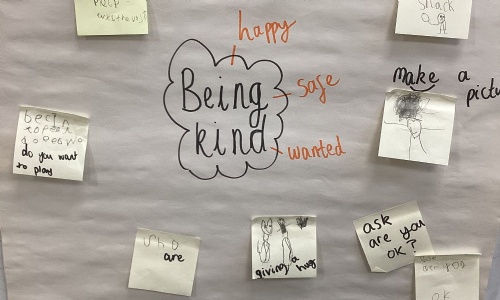 help
snack
happy
Being
kind
safe
wanted
make a
pictu
do you want
to play
sho
are
giving a hug
ask
are you
OK?
ok